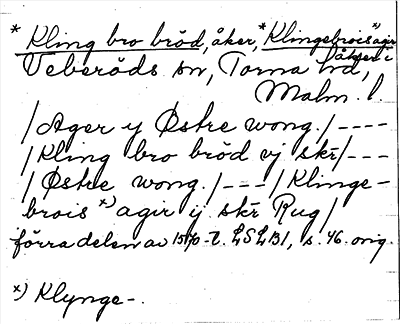 * Kling bro bröd, åker, * Klingebrois *) agir
åker i
Veberöds sn, Torna hd,
Malm. l.
/Ager y Østre wong./----
/Kling bro bröd vj skr/---
/Østre wong./---/Klinge-
brois *) agir ij skr Rug/
förra delen av 1570-t. LSLB1, s. 46. orig.
*) Klynge-.